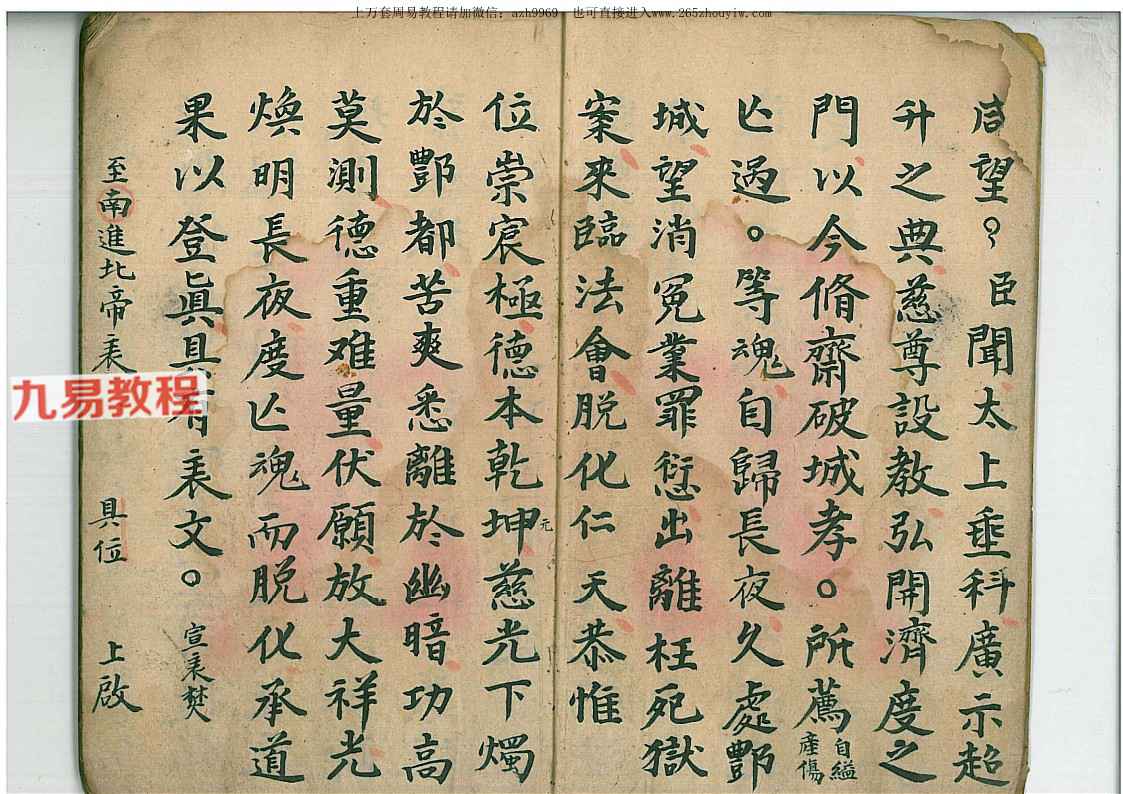 上万套周易教程请加微信：azh9969 也可直接进入www.265zhouyiw.com
咨望。々臣聞太上垂科廣示超
升之典慈尊設教弘開濟度之
門以今脩齋破城孝。所薦自縊產傷
亾過。等魂自歸長夜久處酆
城望消冤業罪愆出離枉死獄
案來臨法會脫化仁天恭惟
位崇宸極德本乾坤元慈光下燭
於酆都苦爽悉離於幽暗功高
莫測德重难量伏願放大祥光
煥明長夜度亾魂而脫化承道
果以登眞具有表文。宣表焚
至南進北帝表 具位 上啟
九易教程